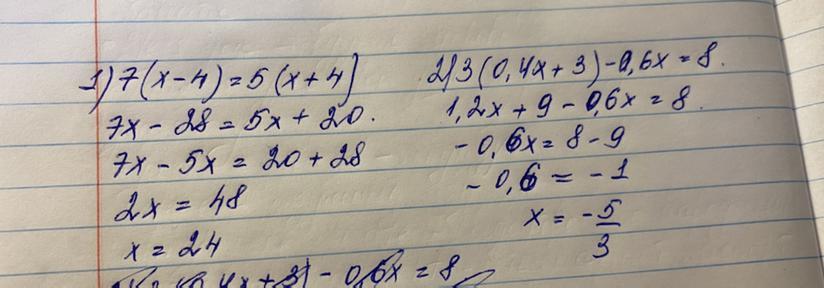 1) 7(x-4)=5(x+4)
7x - 28 = 5x + 20.
7x - 5x = 20 + 28
2x = 48
x = 24
2) 3(0,4x+3)-0,6x=8.
1,2x + 9 - 0,6x = 8.
- 0,6x = 8 - 9
- 0,6 = - 1
x = - 5/3
0,4x + 3) - 0,6x = 8